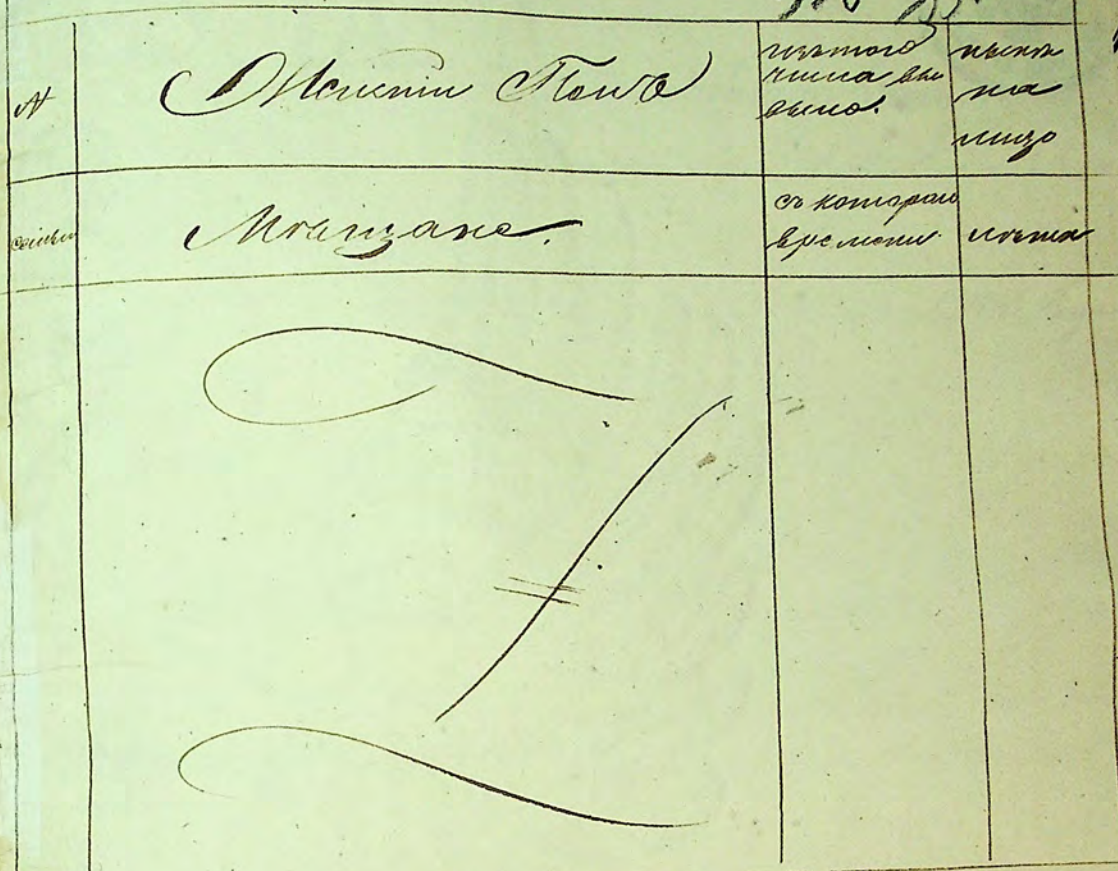 №
Женскiй Полъ
изъ того
числа вы
было.
нынѣ
на
лицо
семьи
Мѣщане.
съ котораго
времени
лѣта